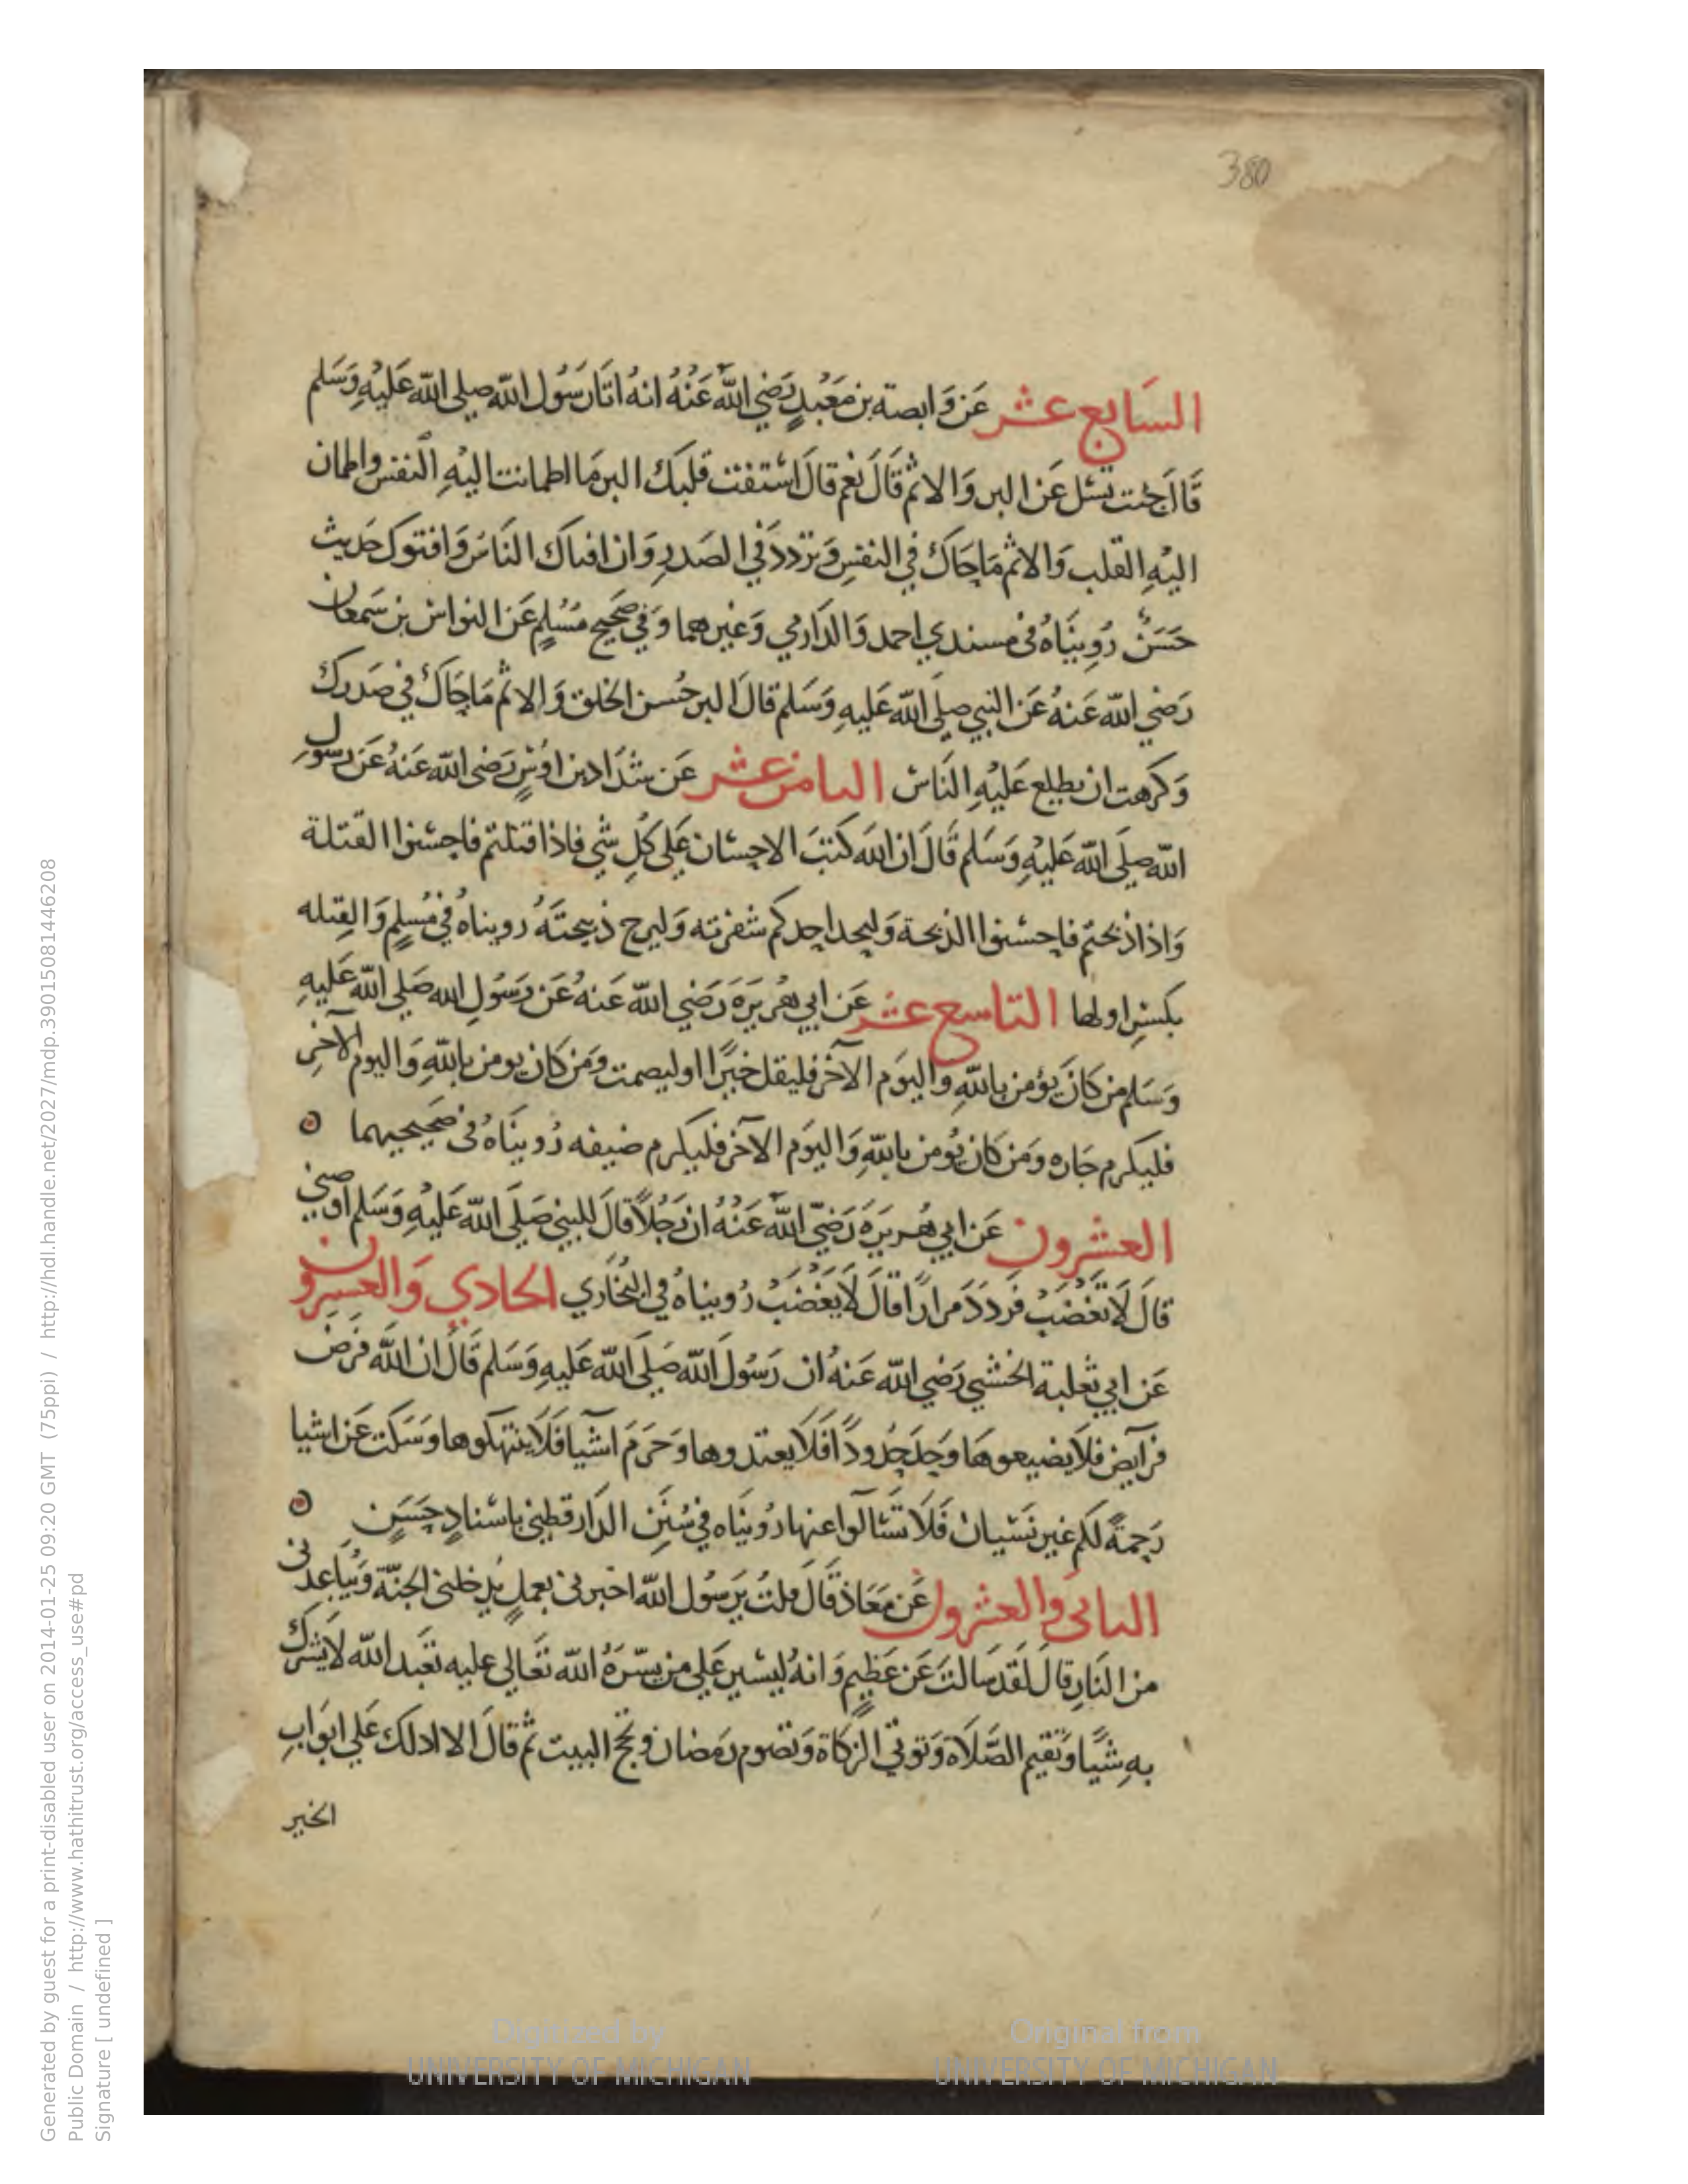 380
السَابع عشر عَن وَابصة بن مَعْبدٍ رَضي الله عَنْهُ انهُ اتَا رَسُول الله صلى الله عَليْهِ وَسَلم
قَالَ جئت تسئل عَن البر وَالاثم قَالَ نعم قالَ اسْتفت قلبَك البر مَا اطمانت اليْهِ النفس واطمان
اليْهِ القلب وَالاثم مَا حَاكَ في النفسِ وَتردد في الصَدرِ وَان افتاك النَاسُ وَافتوك حَديث
حَسَنٌ رُوِينَاهُ في مسندي احمد وَالدَارمي وَغيرهما وَفي صَحيح مُسْلمٍ عَن النواس بن سَمعان
رَضي الله عَنهُ عَن النبي صلى الله عَليهِ وَسَلم قالَ البر حُسن الخلق وَالاثم مَا حَاكَ في صَدرك
وَكرهت ان يطلع عَليْهِ النَاسُ الثامن عشر عَن شدَاد بن اوْسٍ رَضي الله عَنهُ عَن رسول
الله صلَى الله عَليْهِ وَسَلم قَالَ ان الله كتبَ الاحسَان عَلى كُلِ شي فاذا قتلتم فاحسنوا القتلة
وَاذا ذبحتم فاحسنوا الذبحة وَليحد احدكم شفرته وَليرح ذبيحتَهُ رويناهُ في مُسلمٍ وَالقِتله
بكسْرِ اولها التاسع عشر عَن ابي هُريَرَة رَضي الله عَنهُ عَن رَسُولِ الله صَلى الله عَليهِ
وَسَلم من كانَ يؤمن باللهِ وَاليوَم الآخر فليقل خيرًا اوليصمت ومَن كان يومن باللهِ وَاليوم الآخرِ
فليكرم جَاره ومَن كان يُومن باللهِ وَاليوَم الآخر فليكرم ضيفه رُوينَاهُ في صَحيحيهما
العشرون عَن ابي هُريرَة رَضيَ الله عَنْهُ ان رَجُلاً قالَ للنبي صَلى الله عَليْهِ وَسَلم اوصني
قالَ لَا تَغْضَبْ فَردَدَ مرارًا قالَ لَا تَغْضَبْ رُويناهُ في البُخَاري الحادي وَالعشرون
عَن ابي ثعلبة الخشني رَضي الله عَنهُ ان رَسُولَ الله صَلى الله عَليهِ وَسَلم قَالَ ان الله فَرَض
فرآيض فلاَ تضيعوهَا وَحَدَ حُدودًا فَلَا تعتدوها وَحَرمَ اشيا فَلَا تنتهكوها وَسَكت عَن اشيا
رَحمةً لكم غير نسْيان فَلاَ تَسْالوا عنها رُوينَاه في سُنَنِ الدَار قطني باسْنادٍ حَسَنٍ
الثاني والعشرون عَن مَعَاذ قَالَ قلتُ يَرسُول الله اخبرني بعملٍ يُدخلني الجنّة وَيُبَاعدني
من النَارِ قالَ لقَد سَالتَ عَن عَظيمٍ وَانهُ ليسْير عَلى من يسّرَهُ الله تعَالى عليه تعْبد الله لَا تشرك
بهِ شيًا وَتقيم الصَّلاَة وَتوتي الزكاة وَتصُوم رمَضان وتحج البيت ثم قالَ الا ادلك عَلى ابوَابِ
الخير
Digitized by
UNIVERSITY OF MICHIGAN
Original from
UNIVERSITY OF MICHIGAN
Generated by guest for a print-disabled user on 2014-01-25 09:20 GMT (75ppi) / http://hdl.handle.net/2027/mdp.39015081446208
Public Domain / http://www.hathitrust.org/access_use#pd
Signature [ undefined ]